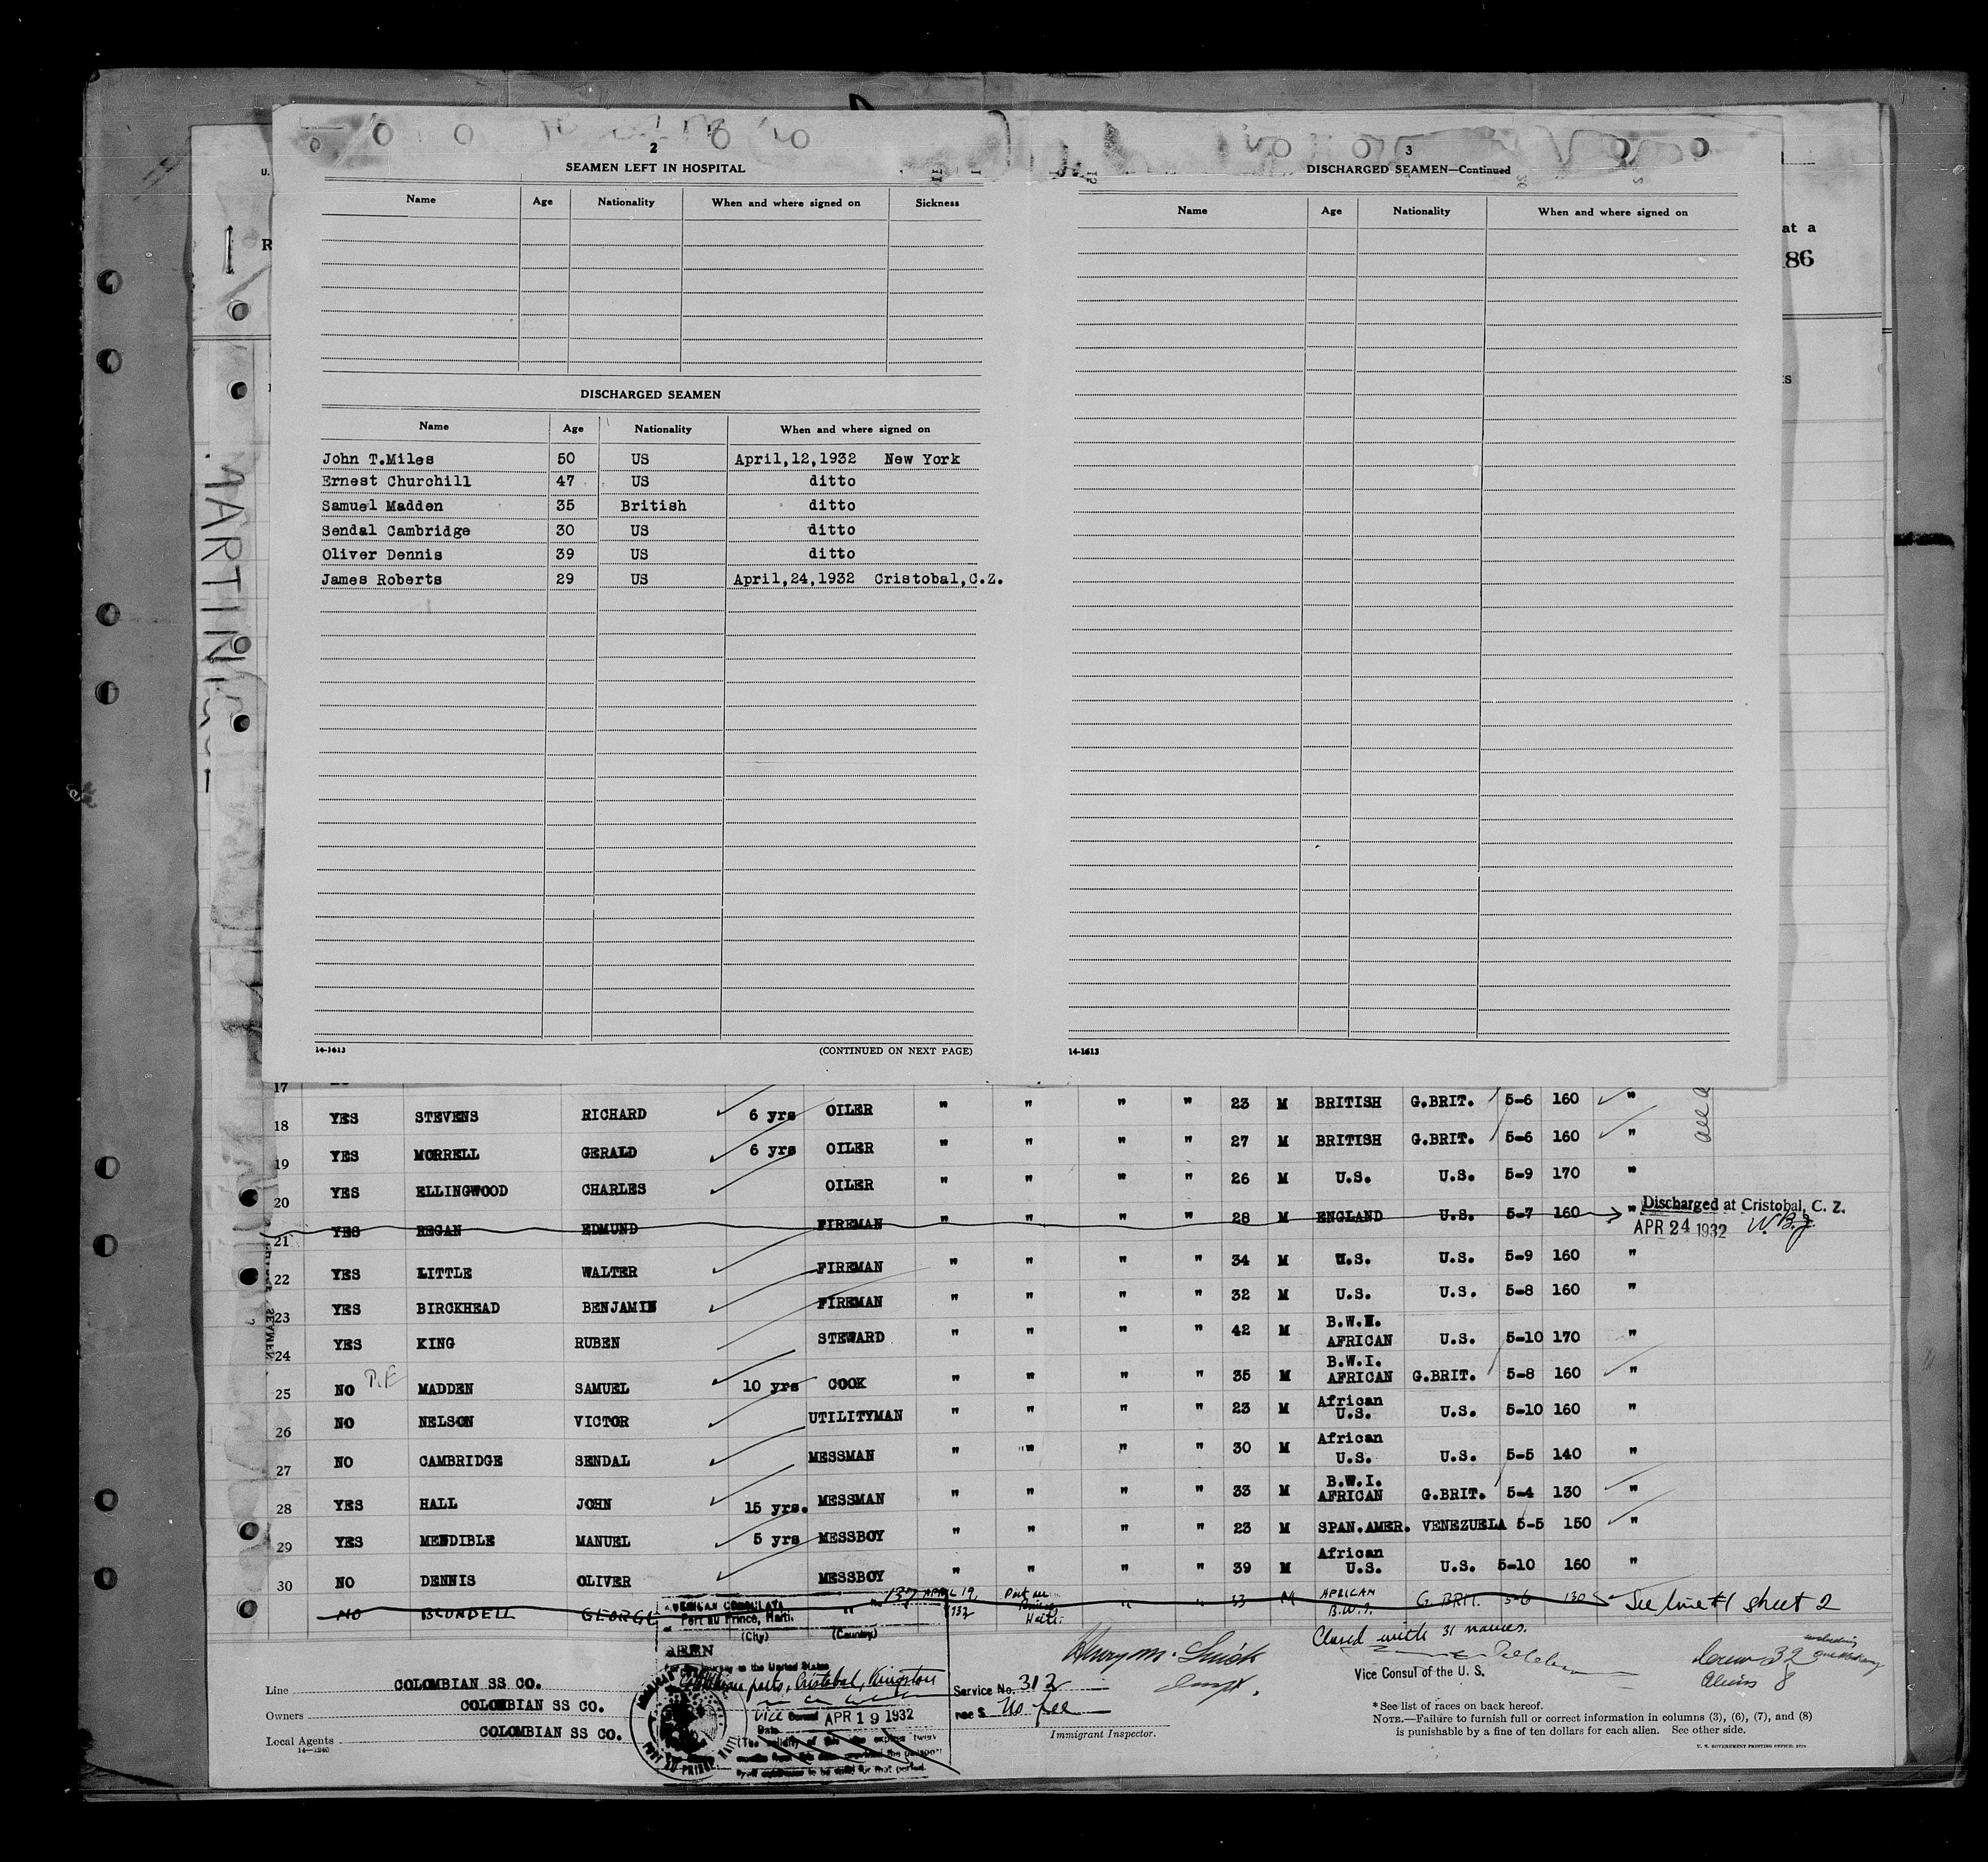 2
SEAMEN LEFT IN HOSPITAL
Name Age Nationality When and where signed on Sickness
DISCHARGED SEAMEN
Name Age Nationality When and where signed on
John T.Miles 50 US April,12,1932 New York
Ernest Churchill 47 US ditto
Samuel Madden 35 British ditto
Sendal Cambridge 30 US ditto
Oliver Dennis 39 US ditto
James Roberts 29 US April,24,1932 Cristobal,C.Z.
14-1613 (CONTINUED ON NEXT PAGE)
3
DISCHARGED SEAMEN—Continued
Name Age Nationality When and where signed on
14-1613
U.
R
at a
86
17
YES STEVENS RICHARD 6 yrs OILER " " " " 23 M BRITISH G.BRIT. 5-6 160 "
18
YES MORRELL GERALD 6 yrs OILER " " " " 27 M BRITISH G.BRIT. 5-6 160 "
19
YES ELLINGWOOD CHARLES OILER " " " " 26 M U.S. U.S. 5-9 170 "
20
YES REGAN EDMUND FIREMAN " " " " 28 M ENGLAND U.S. 5-7 160 " Discharged at Cristobal, C. Z.
APR 24 1932
21
YES LITTLE WALTER FIREMAN " " " " 34 M U.S. U.S. 5-9 160 "
22
YES BIRCKHEAD BENJAMIN FIREMAN " " " " 32 M U.S. U.S. 5-8 160 "
23
YES KING RUBEN STEWARD " " " " 42 M B.W.I. AFRICAN U.S. 5-10 170 "
24
NO MADDEN SAMUEL 10 yrs COOK " " " " 35 M B.W.I. AFRICAN G.BRIT. 5-8 160 "
25
NO NELSON VICTOR UTILITYMAN " " " " 23 M African U.S. U.S. 5-10 160 "
26
NO CAMBRIDGE SENDAL MESSMAN " " " " 30 M African U.S. U.S. 5-5 140 "
27
YES HALL JOHN 15 yrs. MESSMAN " " " " 33 M B.W.I. AFRICAN G.BRIT. 5-4 130 "
28
YES MENDIBLE MANUEL 5 yrs MESSBOY " " " " 23 M SPAN.AMER. VENEZUELA 5-5 150 "
29
NO DENNIS OLIVER MESSBOY " " " " 39 M African U.S. U.S. 5-10 160 "
30
NO BLUNDELL GEORGE " APRIL 19, 1932 Port au Prince Haiti. " " 33 M AFRICAN B.W.I. G. BRIT. 5-6 130 See line #1 sheet 2
AMERICAN CONSULATE
Port au Prince, Haiti.
(City) (Country)
SEEN
For the journey to the United States
ports, Cristobal, Kingston
Vice Consul APR 19 1932
Date
Service No. 312
Fee $ No fee
Closed with 31 names.
Vice Consul of the U. S.
Immigrant Inspector.
Crew 32
Aliens 8
Line COLOMBIAN SS CO.
Owners COLOMBIAN SS CO.
Local Agents COLOMBIAN SS CO.
14—1240
* See list of races on back hereof.
NOTE.—Failure to furnish full or correct information in columns (3), (6), (7), and (8)
is punishable by a fine of ten dollars for each alien. See other side.